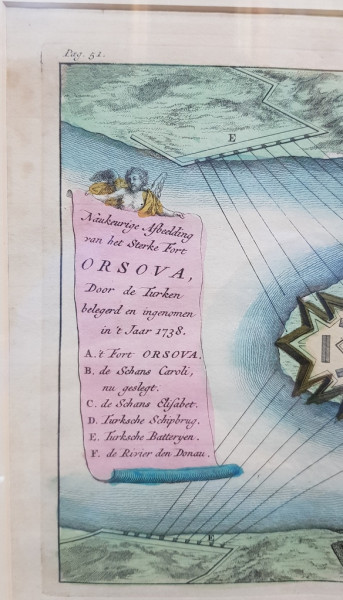 Pag. 51.
E
Naukeurige Afbeelding
van het Sterke Fort
ORSOVA,
Door de Turken
belegerd en ingenomen
in 't Jaar 1738.
A. 't Fort ORSOVA.
B. de Schans Caroli,
nu geslegt.
C. de Schans Elisabet.
D. Turksche Schipbrug.
E. Turksche Batteryen.
F. de Rivier den Donau.
E